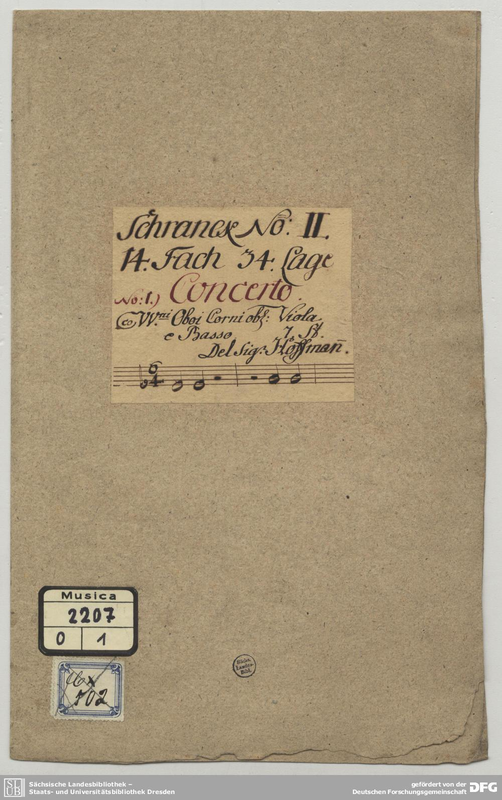 Schranck No: II.
14. Fach 34. Lage
No: 1.) Concerto.
Co VV.ni Oboi Corni obl: Viola
e Basso 7. St.
Del Sigr: Hoffman̄.
Musica
2207
O 1
Cx
702
Sächs.
Landes-
Bibl.
Sächsische Landesbibliothek –
Staats- und Universitätsbibliothek Dresden
gefördert von der
Deutschen Forschungsgemeinschaft
DFG
SLUB